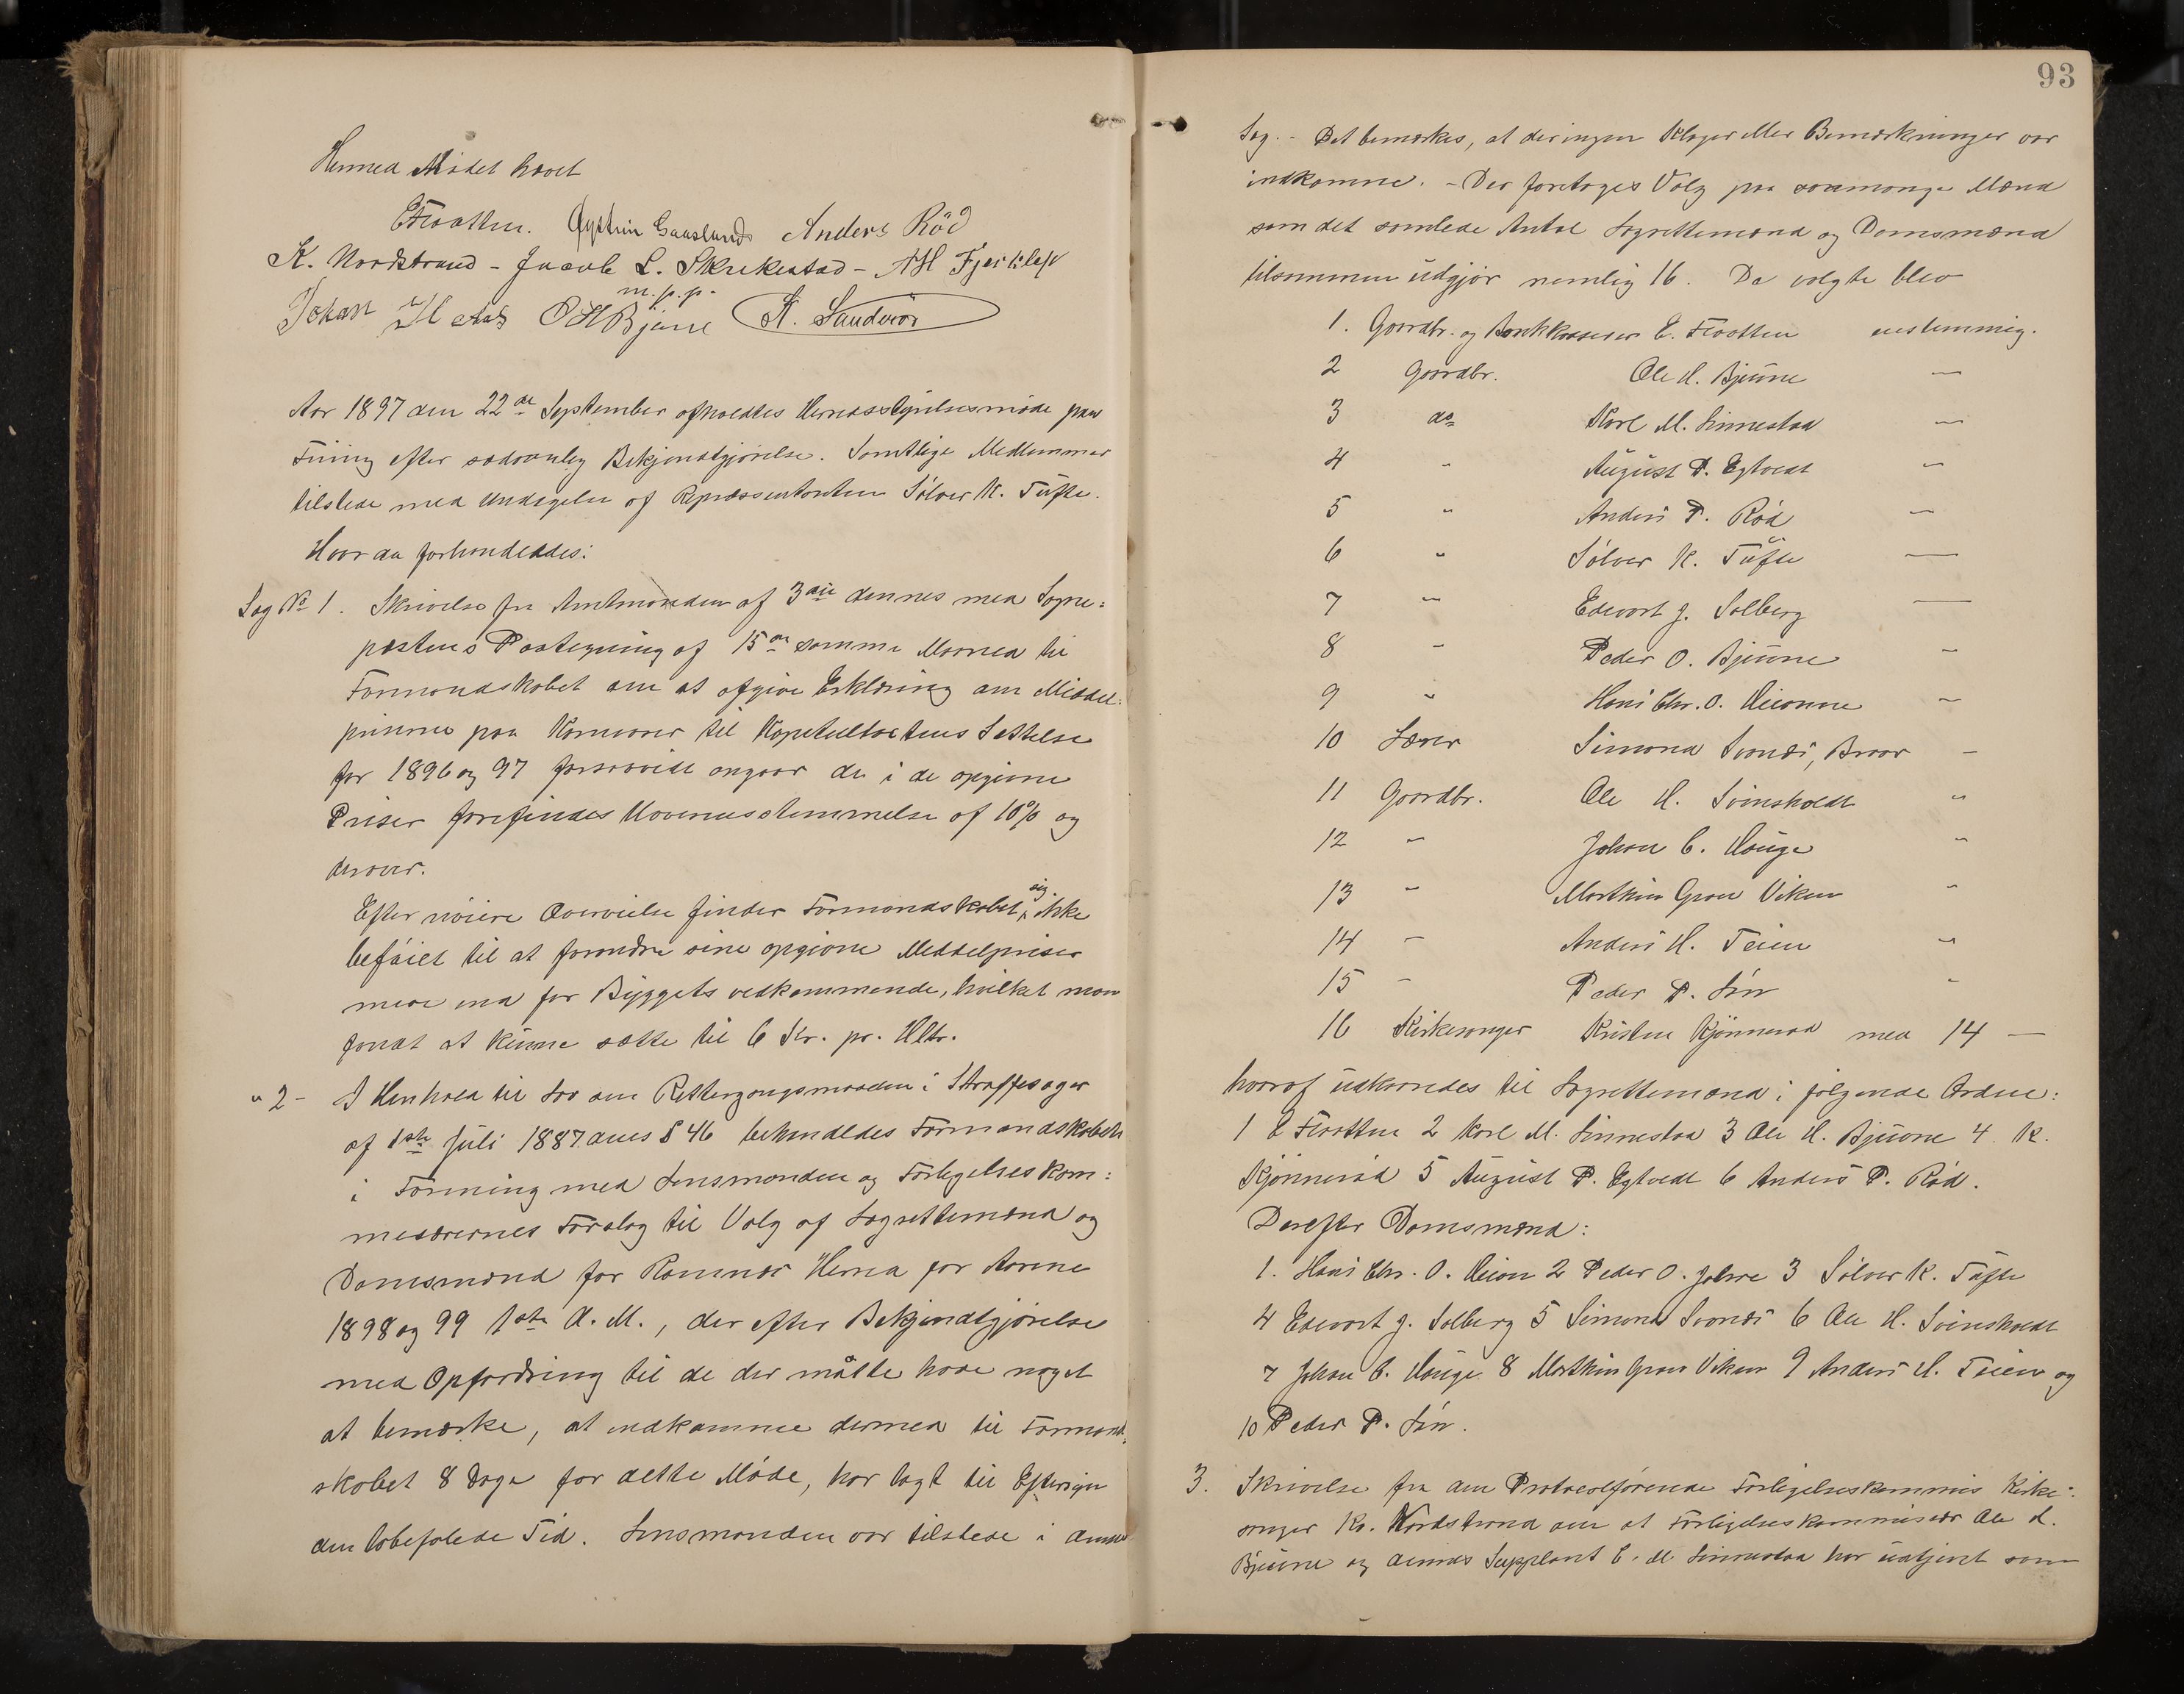 Hermed Mødet hævet
EFloatten. Øystein Gaaslund Anders Röd
K. Nordstrand - Jacob L. Skrikestad - AH Fjærklep
m.p.p.
Johan H. Aas OHBjune K. Sandvör
Aar 1897 den 22de September afholdtes Herredsstyrelsesmøde paa
Fring efter sædvanlig Bekjendtgjørelse. Samtlige Medlemmer
tilstede med Undtagelse af Repræsentanten Sølver K. Tufte.
Hvor da forhandledes:
Sag No 1. Skrivelse fra Amtmanden af 3die dennes med Sogne=
prestens Paategning af 15de samme Maaned til
Formandskabet om at afgive Erklæring om Middel=
priserne paa Kornvarer til Kapiteltaxtens Sættelse
for 1896 og 97 forsaavidt angaar de i de opgivne
Priser forefindes Uoverensstemmelse af 10% og
derover.
Efter nøiere Overveielse finder Formandskabet sig ikke
beføiet til at forandre sine opgivne Middelpriser
mere end for Byggets vedkommende, hvilket man
fandt at kunne sætte til 6 Kr. pr. Hltr.
" 2 - I Henhold til Lov om Rettergangsmaaden i Straffesager
af 1ste Juli 1887 dens § 46 behandledes Formandskabets
i Forening med Lensmanden og Forligelseskom=
misærernes Forslag til Valg af Lagrettemænd og
Domsmænd for Ramnæs Herred for Aarene
1898 og 99 1ste A. M., der efter Bekjendtgjørelse
med Opfordring til de der måtte have noget
at bemærke, at indkomme dermed til Formand=
skabet 8 Dage før dette Møde, har lagt til Eftersyn
den lovbefalede Tid. Lensmanden var tilstede i denne
93
Sag. - Det bemærkes, at der ingen Klager eller Bemærkninger var
indkomne. - Der foretoges Valg paa saamange Mænd
som det samlede Antal Lagrettemænd og Domsmænd
tilsammen udgjør nemlig 16. De valgte blev
1. Gaardbr. og Bankkasserer E. Floatten enstemmig.
2 Gaardbr. Ole H. Bjune —
3 do Karl M. Linnestad —
4 " August P. Egtvedt —
5 " Anders P. Rød —
6 " Sølver K. Tufte —
7 " Edvart J. Solberg —
8 " Peder O. Bjune —
9 " Hans Chr. O. Meione —
10 Lærer Simond Svenøi, Braar —
11 Gaardbr. Ole H. Svinsholdt "
12 " Johan C. Hauge "
13 " Marthin Gran Viken "
14 - Anders H. Teien "
15 - Peder P. Lin "
16 Kirkesanger Kristen Kjønnerød med 14 —
hvoraf udkaaredes til Lagrettemænd i følgende Orden:
1 E Floatten 2 Karl M. Linnestad 3 Ole H. Bjune 4. K.
Kjønnerød 5 August P. Egtvedt 6 Anders P. Rød.
Derefter Domsmænd:
1. Hans Chr. O. Meion 2 Peder O. 3 Sølver K. Tufte
4 Edvart J. Solberg 5 Simond Svenøi 6 Ole H. Svinsholdt
7 Johan C. Hauge 8 Marthin Gran Viken 9 Anders H. Teien og
10 Peder P. Lin.
3. Skrivelse fra den Protocolførende Forligelseskommis Kirke=
sanger Kr. Nordstrand om at Forligelseskommissær Ole H.
Bjune og dennes Supplant E. M. Linnestad har udtjent som